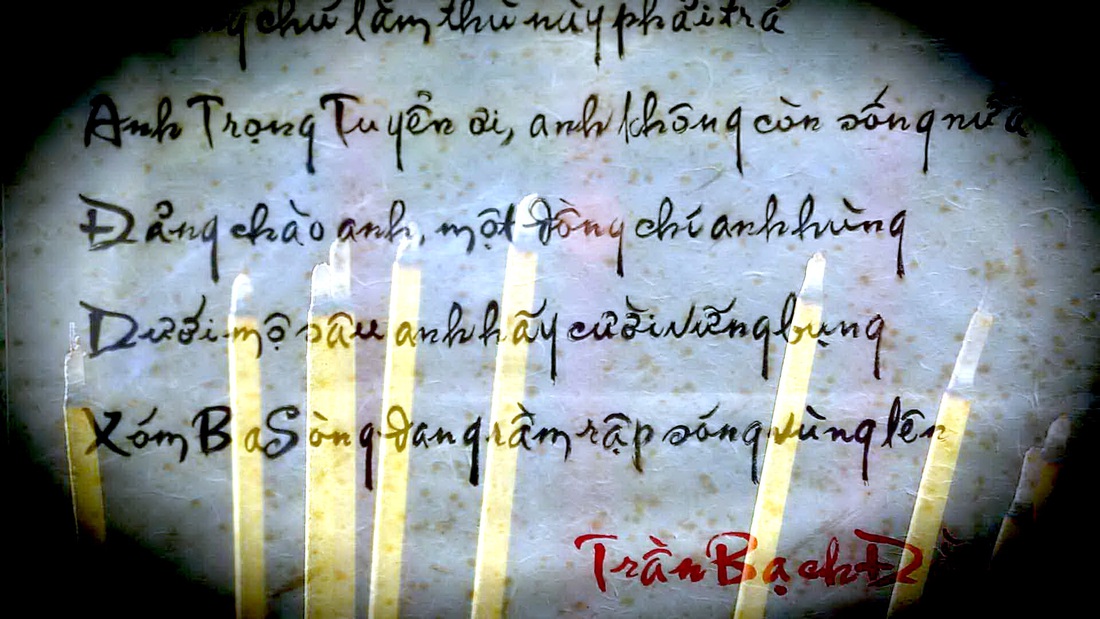 chú làm thù này phải trả
Anh Trọng Tuyển ơi, anh không còn sống nữa
Đảng chào anh, một đồng chí anh hùng
Dưới mộ sâu anh hãy cười vững bụng
Xóm Ba Sòng đang rầm rập sóng vùng lên
Trần Bạch Đ